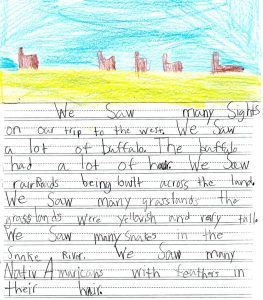 We Saw many Sights
on our trip to the west. We Saw
a lot of buffalo. The buffalo
had a lot of hair. We Saw
rairRoads being built across the land.
We Saw many grasslands the
grasslands were yellwish and very tall.
We Saw many Snakes in the
Snake River. We Saw many
Nativ Amaricans with feathers in
their hair.